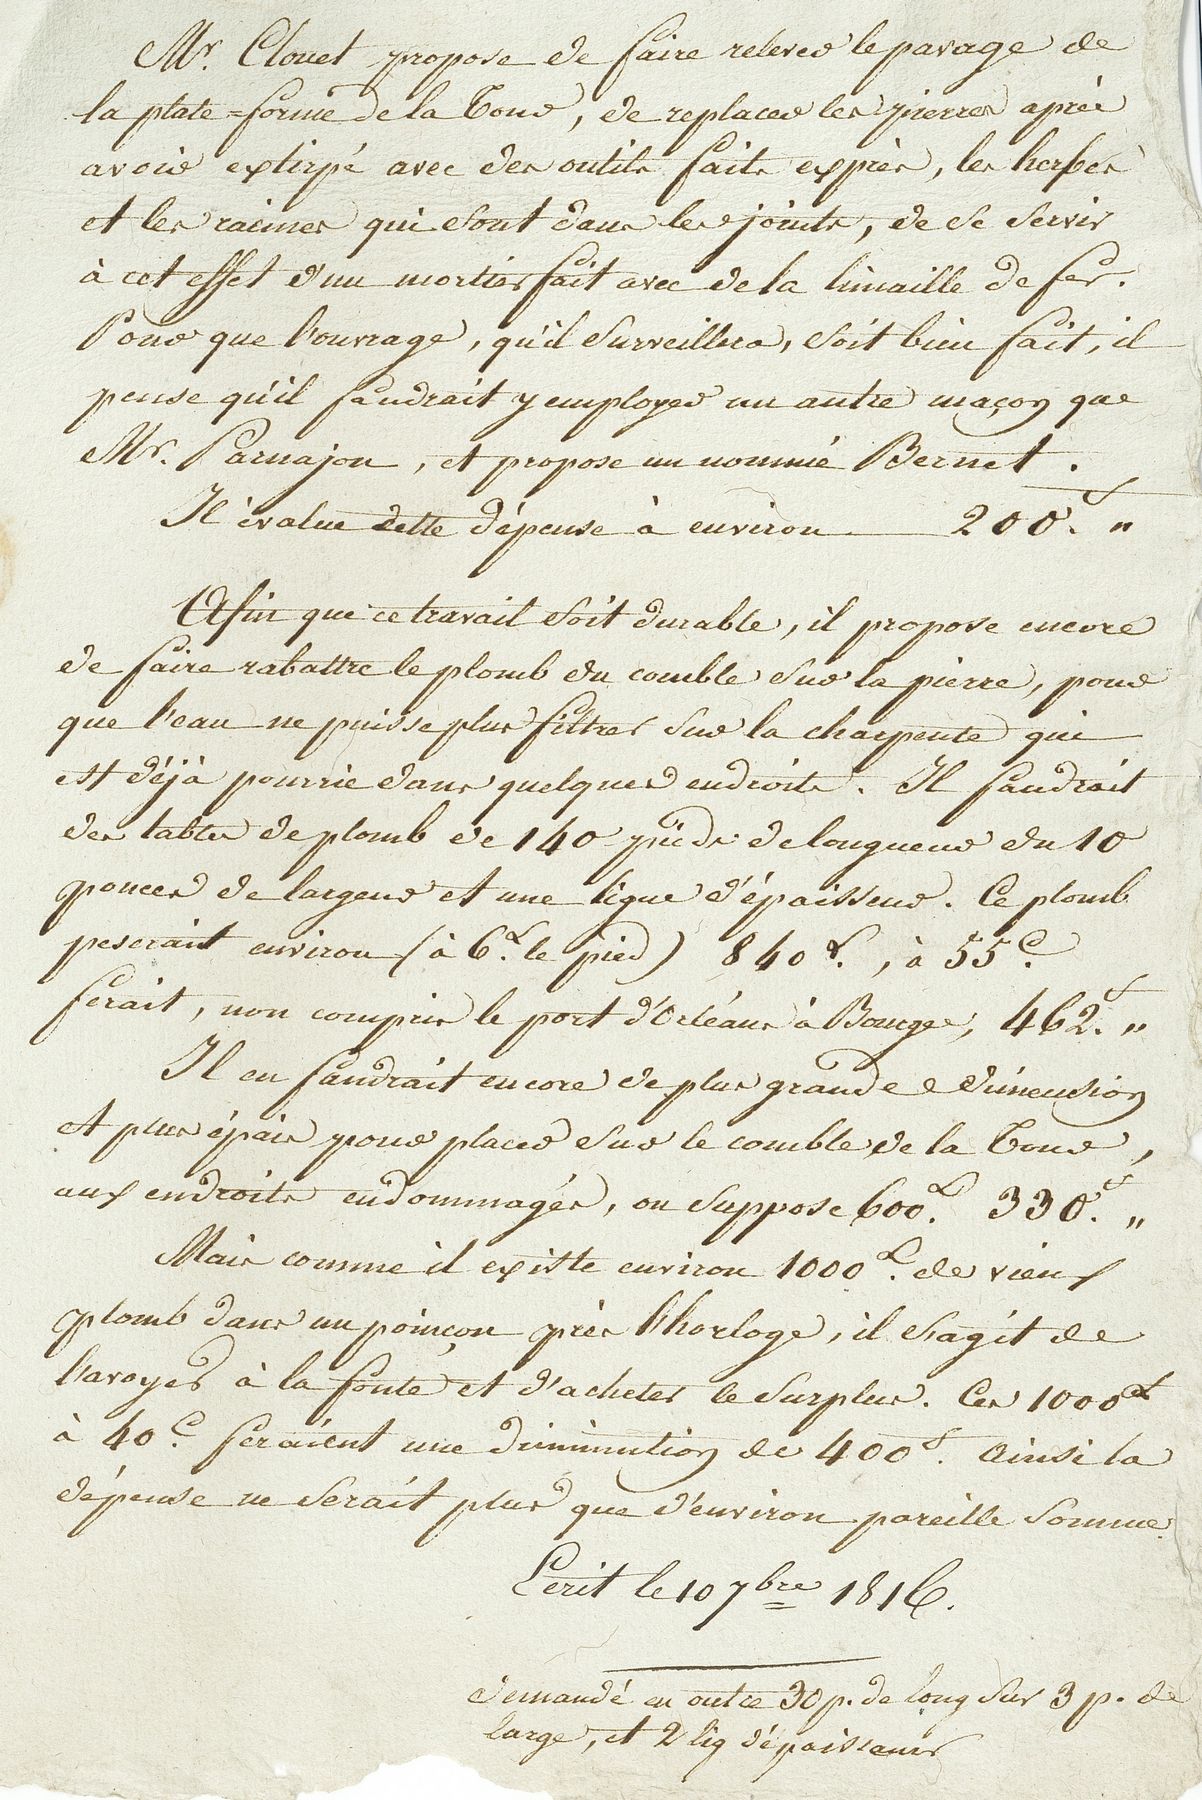 Mr. Clouet propose de faire relever le pavage de
la plate=forme de la Tour, de replacer les pierres après
avoir extirpé avec des outils faits exprès, les herbes
et les racines qui sont dans les joints, de se servir
à cet effet d'un mortier fait avec de la limaille de fer.
Pour que l'ouvrage, qu'il surveillera, soit bien fait, il
pense qu'il faudrait y employer un autre maçon que
Mr. Parnajon, et propose un nommé Bernet.
Il évalue cette dépense à environ 200.f "
Afin que ce travail soit durable, il propose encore
de faire rabattre le plomb du comble sur la pierre, pour
que l'eau ne puisse plus filtrer sur la charpente qui
est déjà pourrie dans quelques endroits. Il faudrait
des tables de plomb de 140 pieds de longueur du 10
pouces de largeur et une ligne d'épaisseur. Ce plomb
peserait environ (à 6.L le pied) 840L., à 55.c
ferait, non compris le port d'Orléans à Bourges, 462.f "
Il en faudrait encore de plus grande dimension
et plus épais pour placer sur le comble de la Tour,
aux endroits endommagés, on suppose 600.L 330.f "
Mais comme il existe environ 1000L. de vieux
plomb dans un poinçon près l'horloge, il s'agit de
l'avoyer à la fonte et d'acheter le surplus. Ces 1000L
à 40.c feraient une diminution de 400f. Ainsi la
dépense ne serait plus que d'environ pareille somme.
Ecrit le 10 7bre 1816.
demandé en outre 30 p. de long sur 3 p. de
large, et 2 lig d'épaisseur